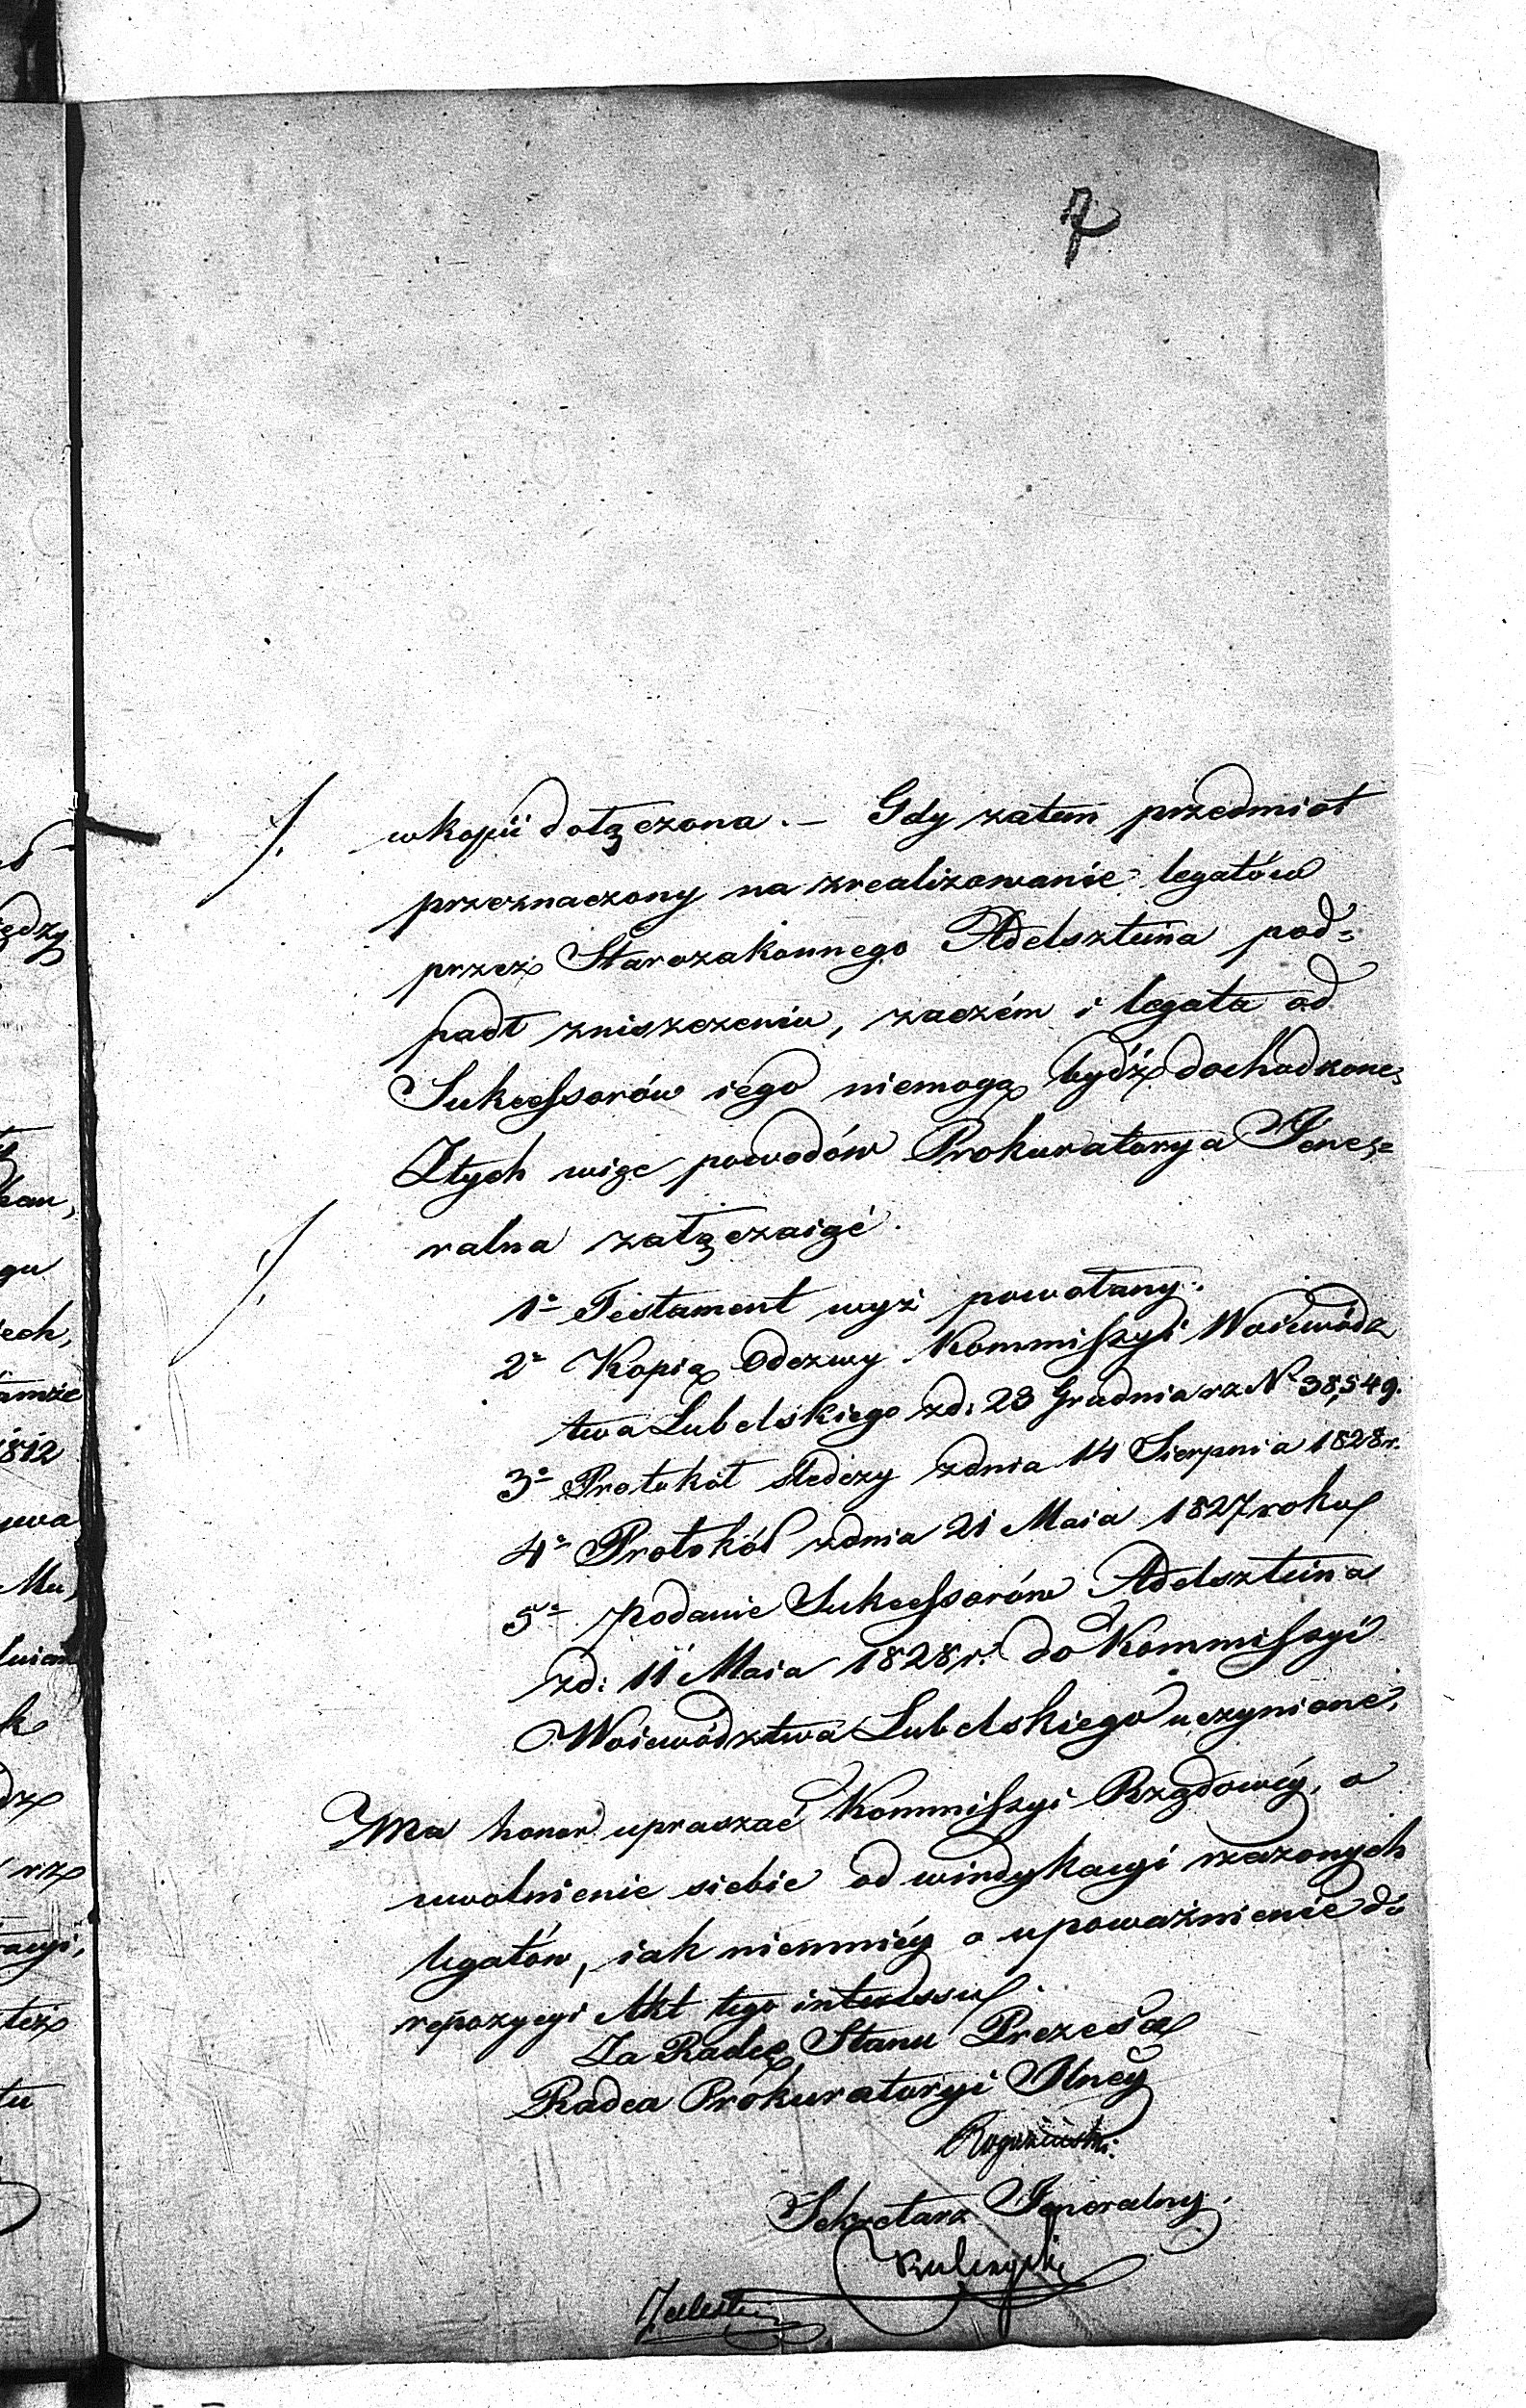 7
w kopii dołączona. — Gdy zatem przedmiot
przeznaczony na zrealizowanie legatów
przez Starozakonnego Adelszteina pod=
padł zniszczeniu, zaczém i legata od
Sukcessorów iego niemogą bydź dochodzone,
Z tych więc powodów Prokuratorya Jene=
ralna załączaiąc
1o Testament wyż powołany.
2o Kopią Odezwy Kommissyi Woiewódz
twa Lubelskiego z d: 23 Grudnia r z No 38,549.
3o Protokół śledczy z dnia 14 Sierpnia 1828 r.
4o Protokół z dnia 21 Maia 1827 roku
5o Podanie Sukcessorów Adelszteina
z d: 11 Maia 1828 r. do Kommissyi
Woiewództwa Lubelskiego uczynione,
Ma honor upraszać Kommissyi Rządowéy, o
uwolnienie siebie od windykacyi rzeczonych
legatów, iak niemniéy o upoważnienie do
repozycyi Akt tego interessu.
Za Radcę Stanu Prezesa
Radca Prokuratoryi Jlney
Sekretarz Jeneralny.
Kulczycki
ędzy
gu
iech,
tamże
1812
k
też
tu